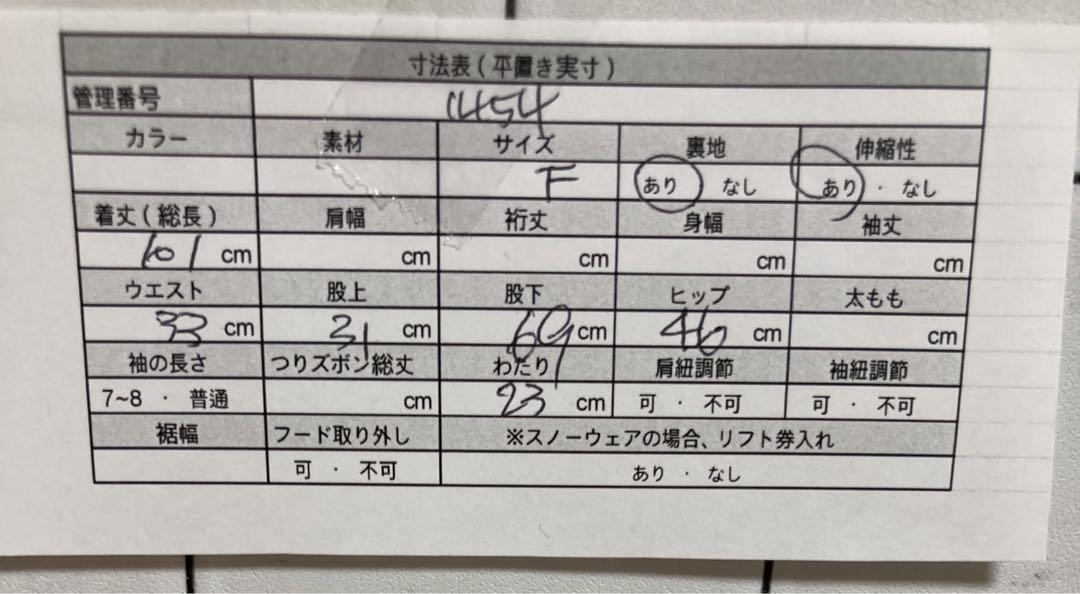 寸法表(平置き実寸)
管理番号 1454
カラー 素材 サイズ 裏地 伸縮性
F あり なし あり · なし
着丈(総長) 肩幅 裄丈 身幅 袖丈
101 cm cm cm cm cm
ウエスト 股上 股下 ヒップ 太もも
33 cm 31 cm 69 cm 46 cm cm
袖の長さ つりズボン総丈 わたり 肩紐調節 袖紐調節
7~8 · 普通 cm 23 cm 可 · 不可 可 · 不可
裾幅 フード取り外し ※スノーウェアの場合、リフト券入れ
可 · 不可 あり · なし